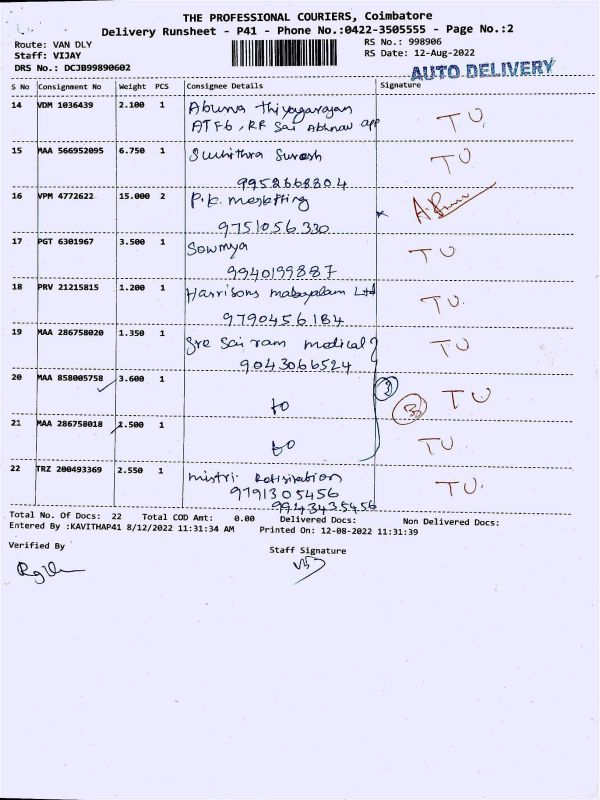 THE PROFESSIONAL COURIERS, Coimbatore
Delivery Runsheet - P41 - Phone No.:0422-3505555 - Page No.:2
Route: VAN DLY RS No.: 998906
Staff: VIJAY RS Date: 12-Aug-2022
DRS No.: DCJB99890602 AUTO DELIVERY
S No Consignment No Weight PCS Consignee Details Signature
14 VDM 1036439 2.100 1 Abuna Thiyagarajan TU
ATF6, RR Sai Abhnav app
15 MAA 566952095 6.750 1 Suchithra Suresh TU
9958668804
16 VPM 4772622 15.000 2 P.K. Marktting
9751056330
17 PGT 6301967 3.500 1 Sowmya TU
9940199887
18 PRV 21215815 1.200 1 Harrisons malayalam Ltd TU.
9790456184
19 MAA 286758020 1.350 1 Sre Sai ram medical TU
9043066524
20 MAA 858005758 3.600 1 to 3 TU
21 MAA 286758018 2.500 1 to TU.
22 TRZ 200493369 2.550 1 mistri TU.
9791305456
9943435456
Total No. Of Docs: 22 Total COD Amt: 0.00 Delivered Docs: Non Delivered Docs:
Entered By :KAVITHAP41 8/12/2022 11:31:34 AM Printed On: 12-08-2022 11:31:39
Verified By Staff Signature